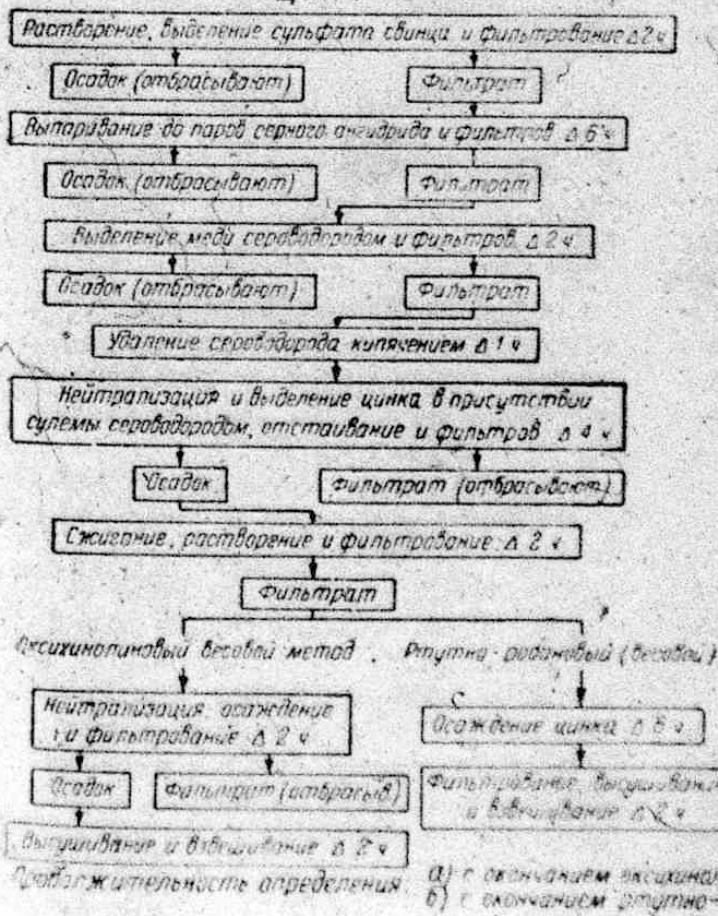 Растворение, выделение сульфата свинца и фильтрование Δ 2 ч
Осадок (отбрасывают)
Фильтрат
Выпаривание до паров серного ангидрида и фильтров Δ 6 ч
Осадок (отбрасывают)
Фильтрат
Выделение меди сероводородом и фильтров. Δ 2 ч
Осадок (отбрасывают)
Фильтрат
Удаление сероводорода кипячением Δ 1 ч
Нейтрализация и выделение цинка в присутствии
сулемы сероводородом, отстаивание и фильтров Δ 4 ч
Осадок
Фильтрат (отбрасывают)
Сжигание, растворение и фильтрование Δ 2 ч
Фильтрат
Оксихинолиновый весовой метод
Ртутно-родановый (весовой)
Нейтрализация осаждение
и фильтрование Δ 2 ч
Осаждение цинка Δ
Осадок
Фильтрат (отбрасыв)
Фильтрование, высушивание
и взвешивание Δ 2 ч
Высушивание и взвешивание Δ 2 ч
Продолжительность определения:
а) с окончанием оксихинол
б) с окончанием ртутно-